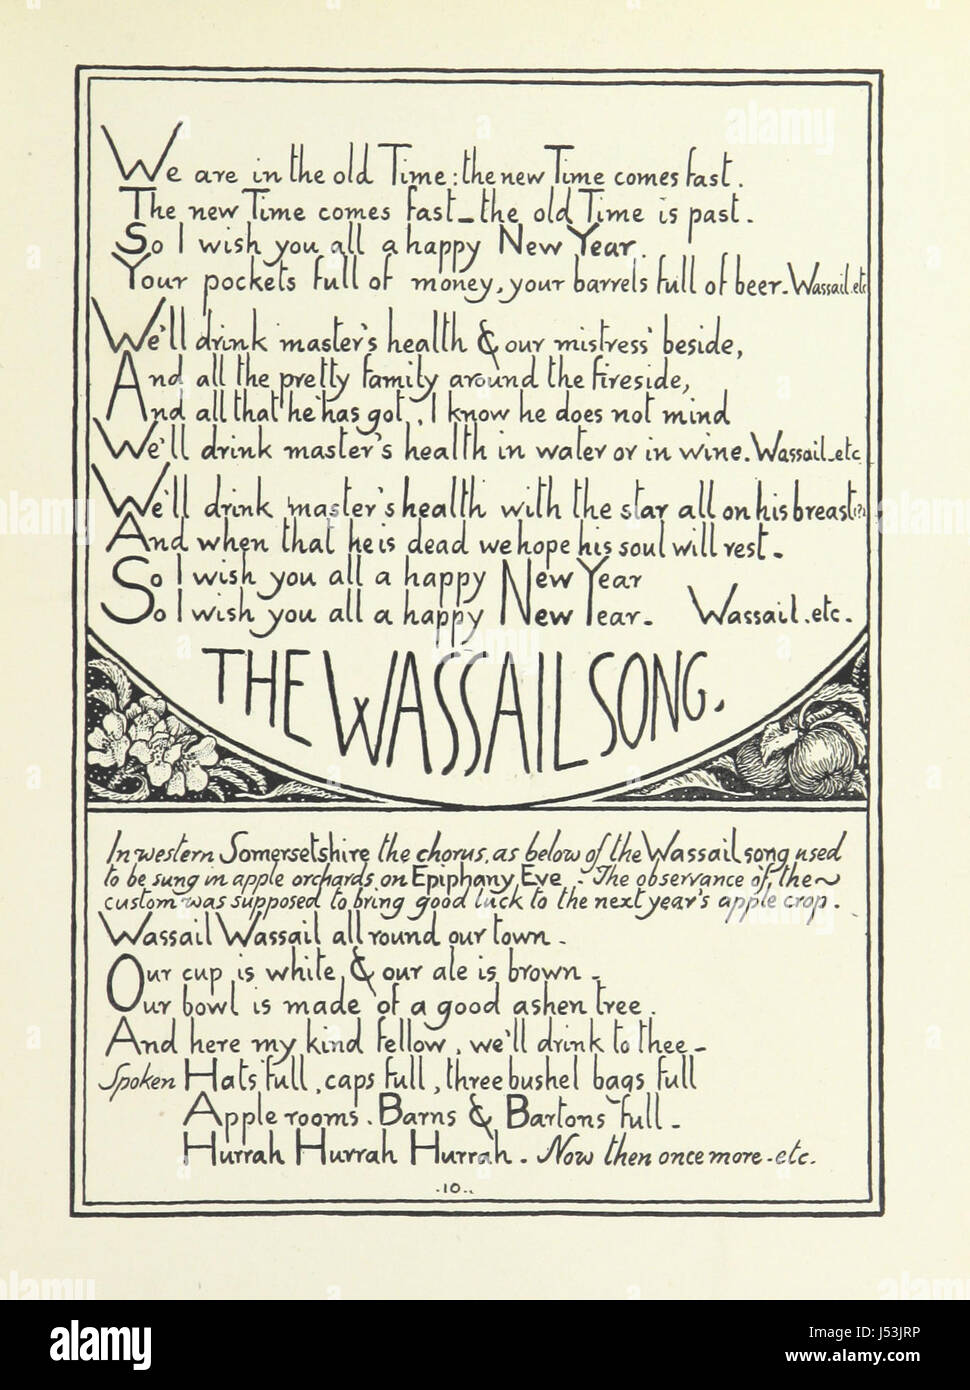 We are in the old Time: the new Time comes fast.
The new Time comes fast - the old Time is past.
So I wish you all a happy New Year.
Your pockets full of money, your barrels full of beer. Wassail. etc
We'll drink master's health & our mistress' beside,
And all the pretty family around the fireside,
And all that he has got, I know he does not mind
We'll drink master's health in water or in wine. Wassail. etc
We'll drink master's health with the star all on his breast(?)
And when that he is dead we hope his soul will rest.
So I wish you all a happy New Year
So I wish you all a happy New Year. Wassail. etc.
THE WASSAIL SONG.
In western Somersetshire the chorus, as below of the Wassail song used
to be sung in apple orchards on Epiphany Eve. The observance of the~
custom was supposed to bring good luck to the next year's apple crop.
Wassail Wassail all round our town.
Our cup is white, & our ale is brown.
Our bowl is made of a good ashen tree.
And here my kind fellow, we'll drink to thee-
Spoken Hats full, caps full, three bushel bags full
Apple rooms. Barns & Bartons full.
Hurrah Hurrah Hurrah. Now then once more. etc.
.10..
alamy
Image ID: J53JRP
www.alamy.com